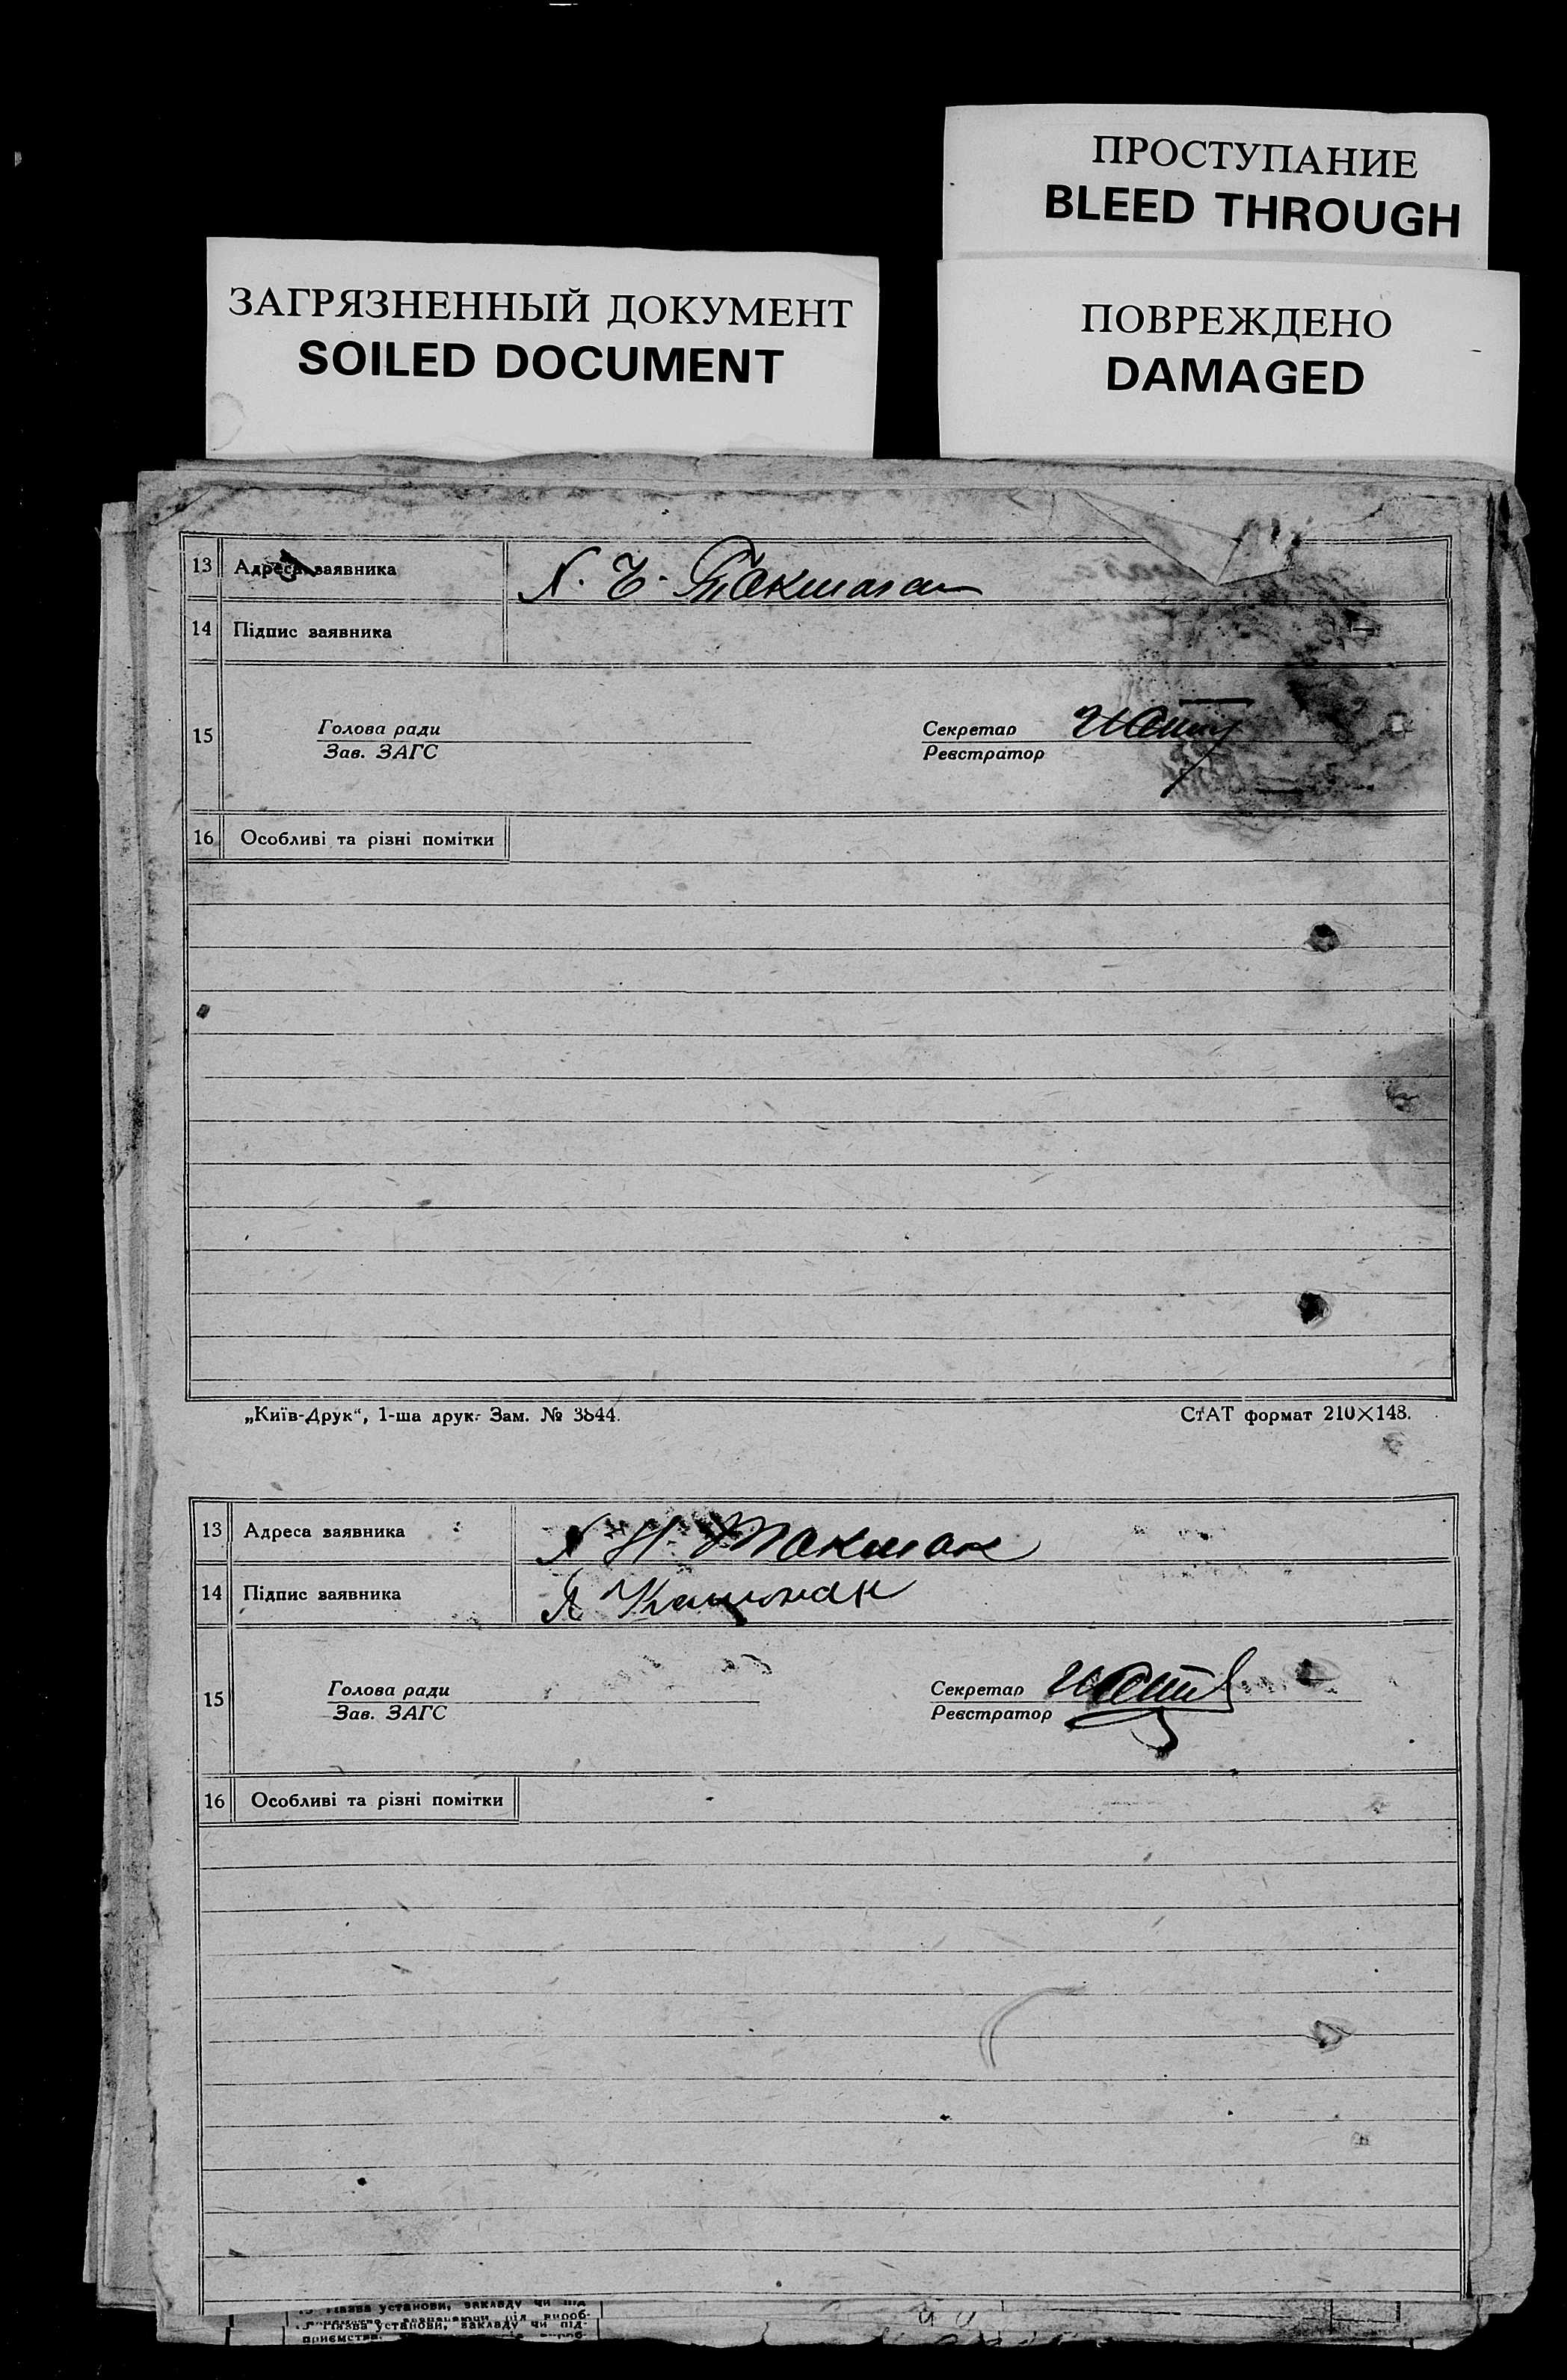 ПРОСТУПАНИЕ
BLEED THROUGH
ЗАГРЯЗНЕННЫЙ ДОКУМЕНТ
SOILED DOCUMENT
ПОВРЕЖДЕНО
DAMAGED
13 Адреса заявника
14 Підпис заявника
15 Голова ради Секретар
Зав. ЗАГС Реєстратор
16 Особливі та різні помітки
„Київ-Друк“, 1-ша друк. Зам. № 3844. СтАТ формат 210×148.
13 Адреса заявника Н. Токмак
14 Підпис заявника
15 Голова ради Секретар
Зав. ЗАГС Реєстратор
16 Особливі та різні помітки
Назва установи, закладу чи під-
приємства